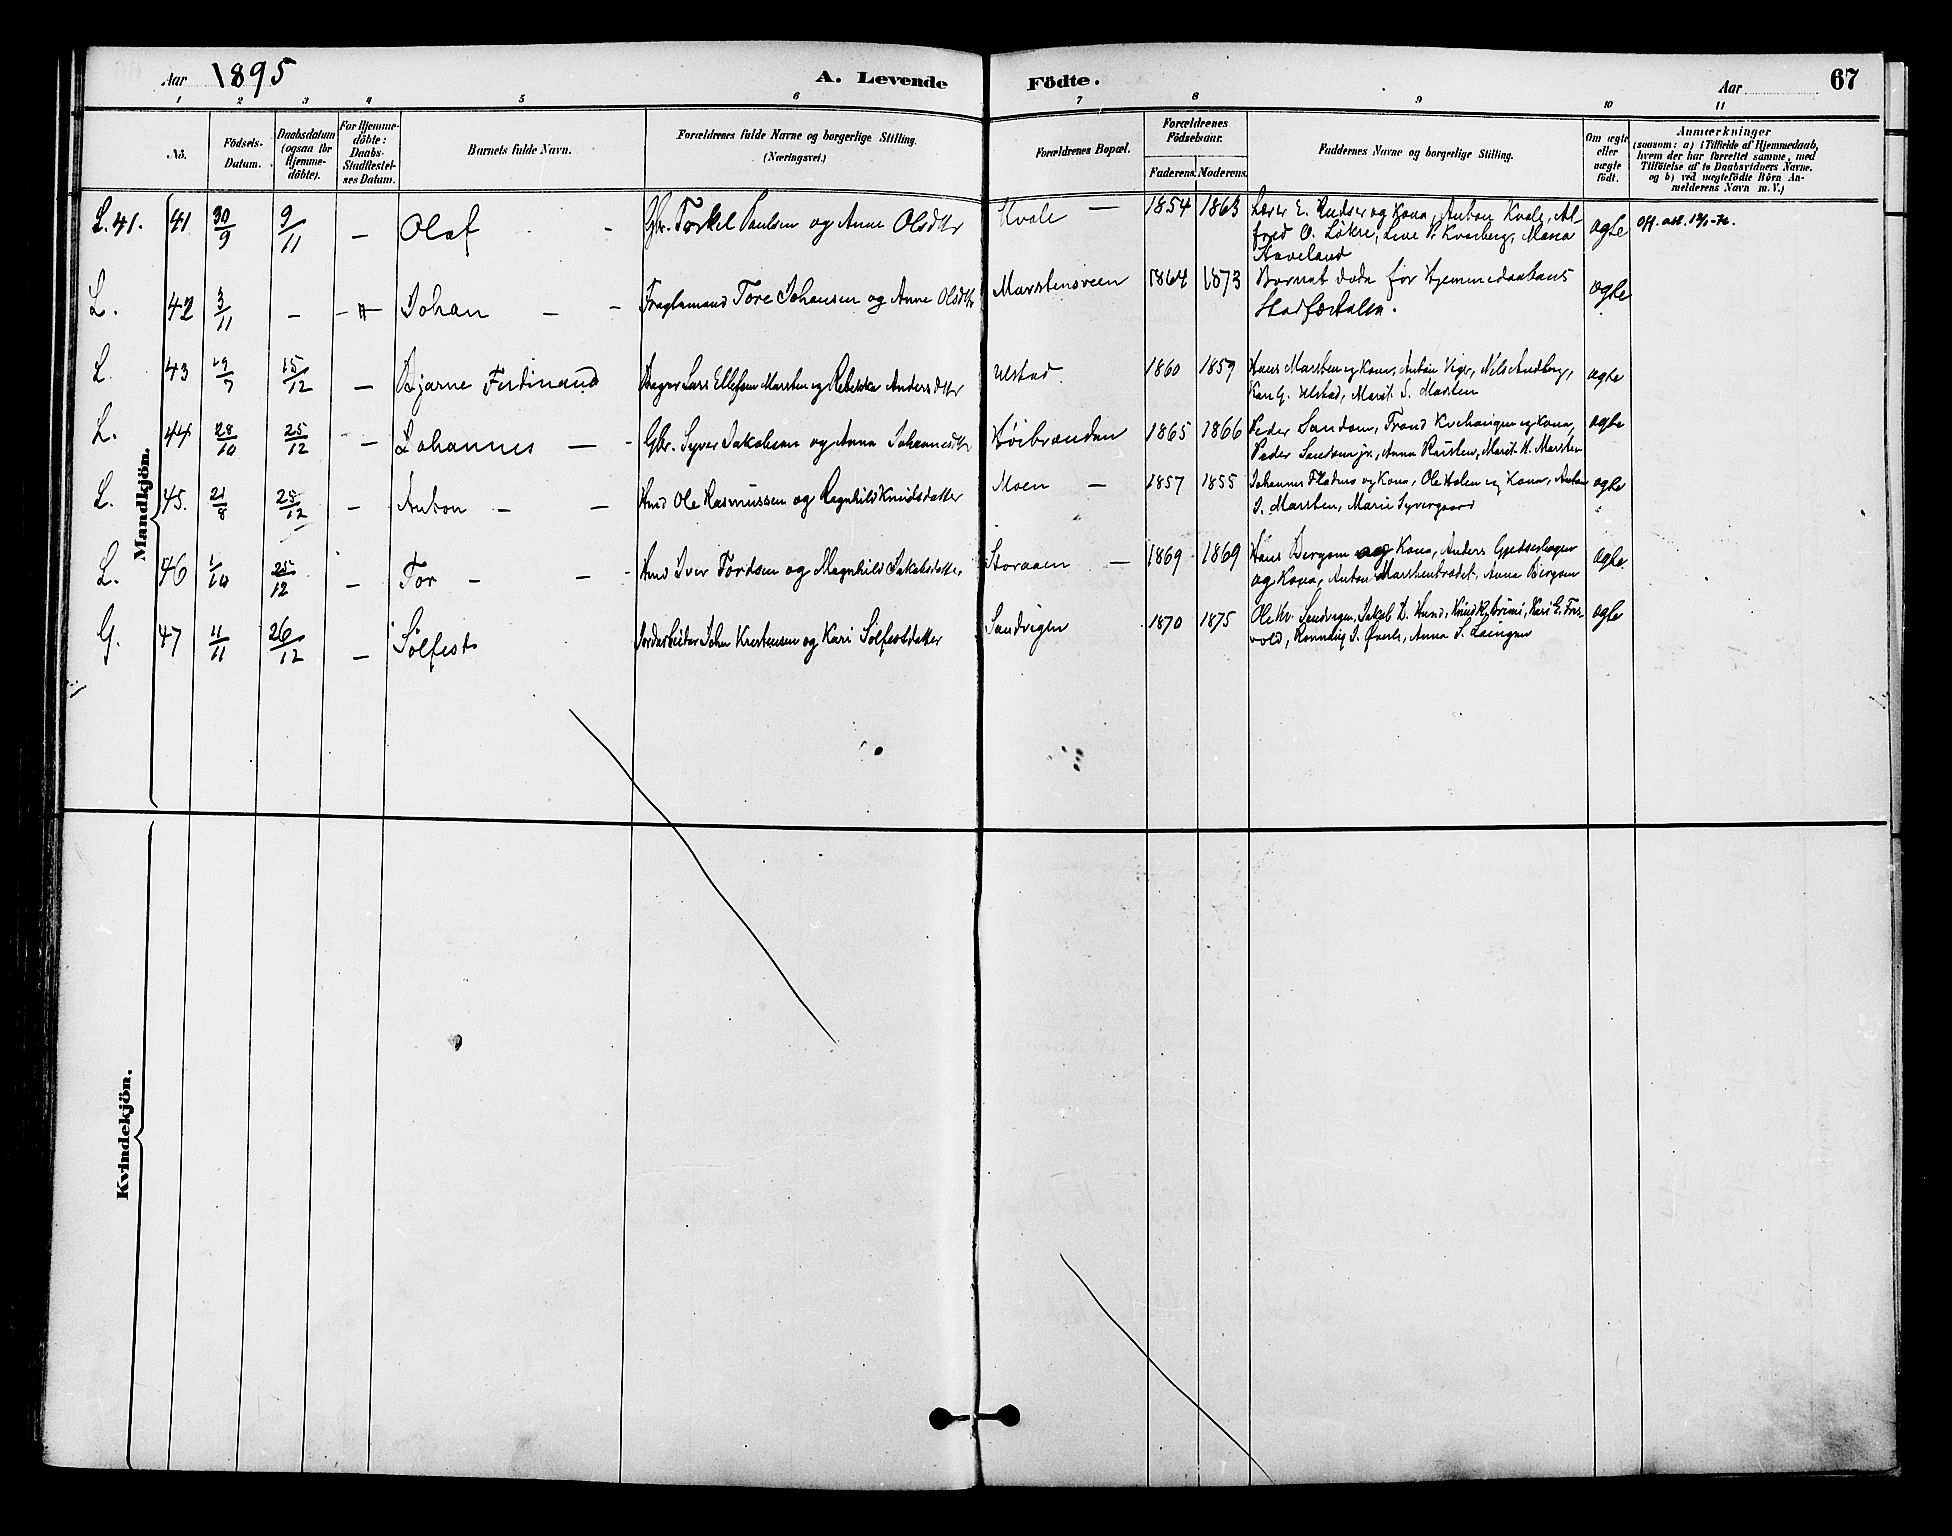 Aar 1895
A. Levende Födte.
Aar
67
1 2 3 4 5 6 7 8 9 10 11
No.
Födsels-
Datum.
Daabsdatum
(ogsaa for
Hjemme-
döbte).
For Hjemme-
döbte:
Daabs-
Stadfæstel-
ses Datum.
Barnets fulde Navn.
Forældrenes fulde Navne og borgerlige Stilling.
(Næringsvei.)
Forældrenes Bopæl.
Forældrenes
Födselsaar.
Faderens. Moderens.
Faddernes Navne og borgerlige Stilling.
Om ægte
eller
uægte
födt.
Anmærkninger
(saasom: a) i Tilfælde af Hjemmedaab,
hvem der har forrettet samme, med
Tilföielse af to Daabsvidners Navne.
og b) ved uægtefödte Börn An-
melderens Navn m. V.)
Mandkjön.
L. 41. 41 30/9 9/11 — Olaf - - Gbr. Torkel Paulsen og Anne Olsdtr Kvale — 1854 1863 Lærer E. Rudser og Kona, Anton Kvale, Al
fred O. Løkre, Live P. Kvarberg, Maria
Haveland
ægte
L. 42 3/11 — — Johan — — Fragtemand Tore Johansen og Anne Olsdtr Marstensveen 1864 1873 Barnet døde før Hjemmedaabens
Stadfæstelse.
ægte
L. 43 19/7 15/12 — Bjarne Ferdinand Bager Lars Ellefsen Marsten og Rebekka Andersdtr Ulstad 1860 1859 Hans Marsten og Kona, Anton Viger, Nils Sandberg,
Kari G. Ulstad, Marit S. Marsten
ægte
L. 44 28/10 25/12 — Johannes — - Gbr. Syver Jakobsen og Anna Johannesdtr Høibrænden 1865 1866 Peder Sandom, Trond Kvehaugen og Kona,
Peder Sandom jr., Anna Rusten, Marit H. Marsten
ægte
L. 45. 21/8 25/12 — Anton — — Hmd Ole Rasmussen og Ragnhild Knudsdatter Moen — 1857 1855 Johannes Fladmo og Kona, Ole Holen og Kona, Anton
I. Marsten, Marie Syvergaard
ægte
L. 46 1/10 25/12 — Tor — — Hmd Iver Tordsen og Magnhild Jakobsdatter, Storaaen — 1869 1869 Hans Bergom og Kona, Anders Gjedsehagen
og Kona, Anton Marstenbrødet, Anna Bergom
ægte
G. 47 11/11 26/12 — Sølfest Jordarbeider John Kristensen og Kari Sølfestdatter Sandvigen 1870 1875 Ole Kv. Sandvigen, Jakob D. Hund, Knud R. Brimi, Kari E. Fris-
vold, Rønnaug I. Øverli, Anna S. Laingen
ægte
Kvindekjön.